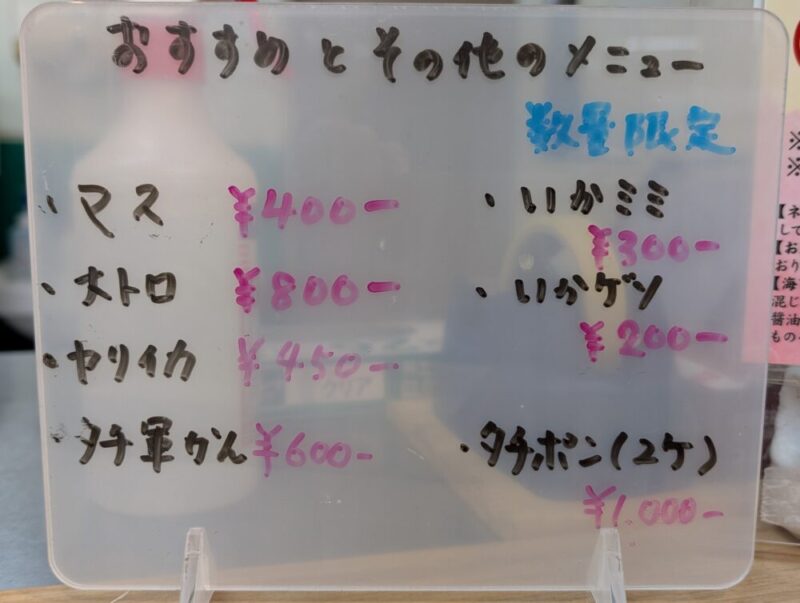 おすすめとその他のメニュー
数量限定
・マス ¥400ー
・大トロ ¥800ー
・ヤリイカ ¥450ー
・タチ軍かん ¥600-
・いかミミ
¥300ー
・いかゲソ
¥200ー
・タチポン(2ケ)
¥1,000-
※
※
【ネ
して
【お
おり
【海
混じ
醤油
もの